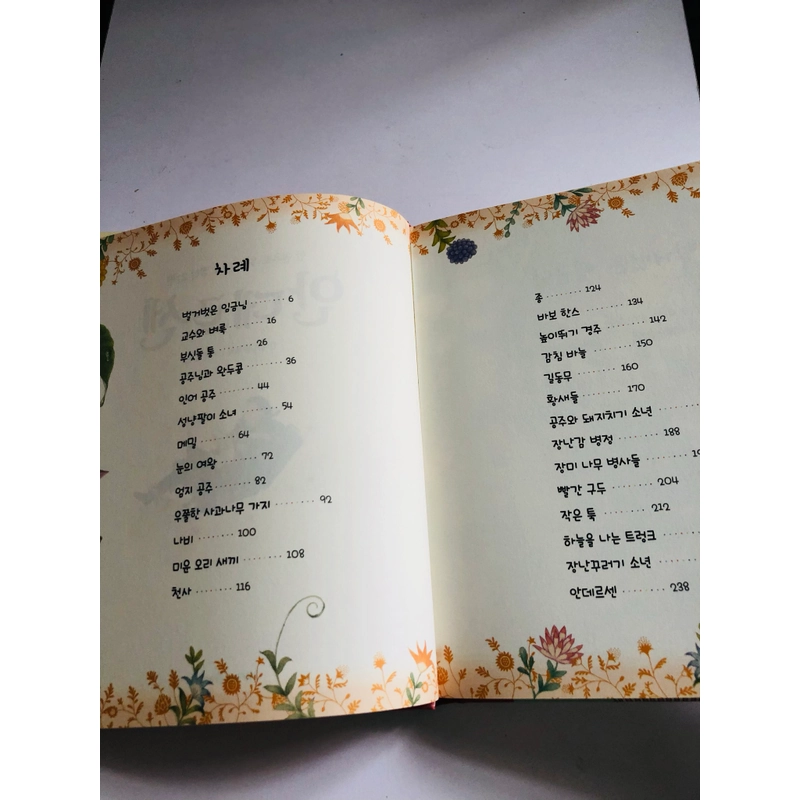 차례
벌거벗은 임금님 ········ 6
교수와 벼룩 ········ 16
부싯돌 통 ········ 26
공주님과 완두콩 ········ 36
인어 공주 ········ 44
성냥팔이 소녀 ········ 54
메밀 ········ 64
눈의 여왕 ········ 72
엄지 공주 ········ 82
우쭐한 사과나무 가지 ········ 92
나비 ········ 100
미운 오리 새끼 ········ 108
천사 ········ 116
종 ········ 124
바보 한스 ········ 134
높이뛰기 경주 ········ 142
감침 바늘 ········ 150
길동무 ········ 160
황새들 ········ 170
공주와 돼지치기 소년 ········
장난감 병정 ········ 188
장미 나무 병사들 ········
빨간 구두 ········ 204
작은 툭 ········ 212
하늘을 나는 트렁크 ········
장난꾸러기 소년 ········
안데르센 ········ 238